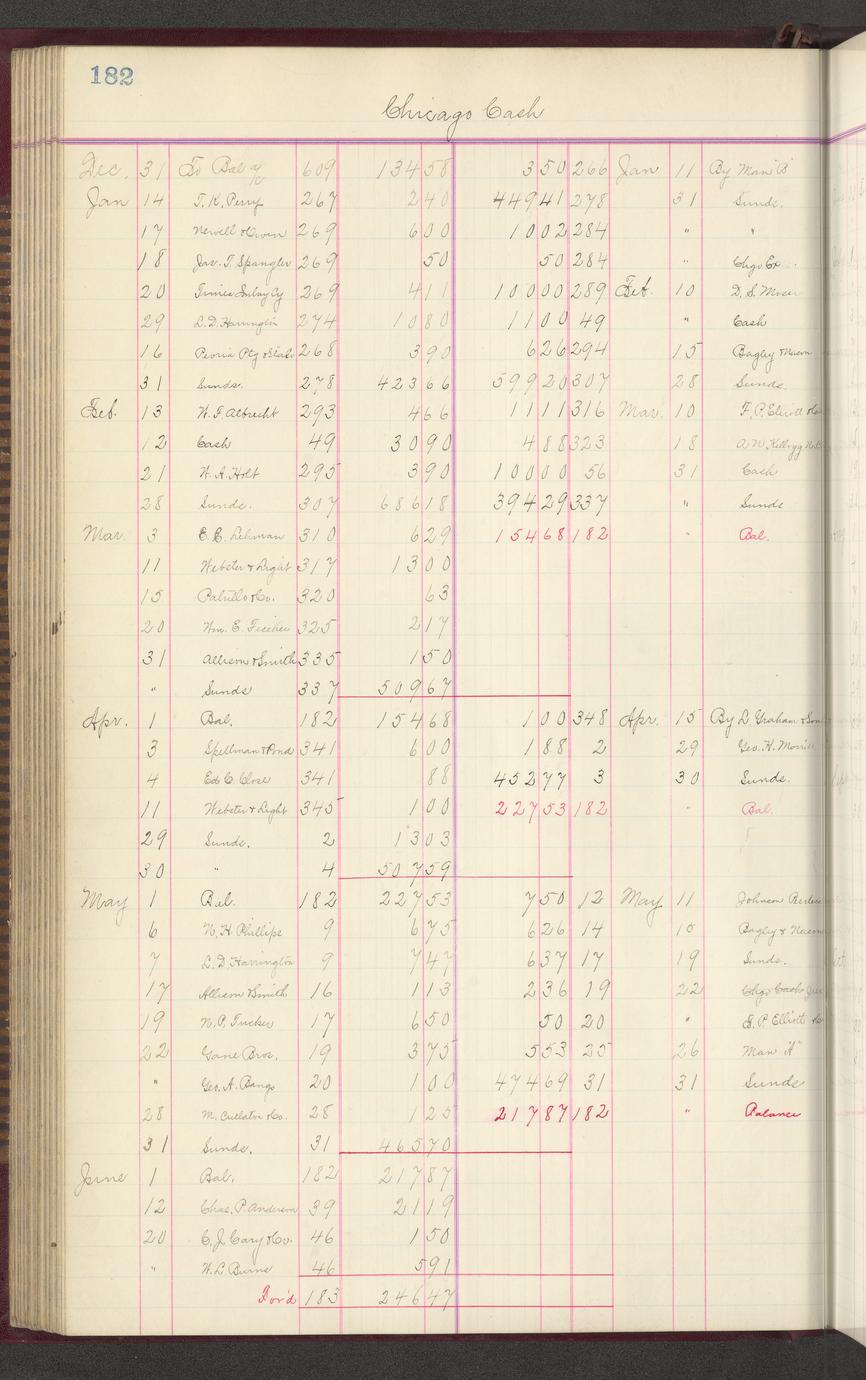 182
Chicago Cash
Dec. 31 To Bal a/c 609 134 58 3 50 266 Jan 11 By Man "B"
Jan 14 T. K. Perry 267 2 40 449 41 278 31 Sunds.
17 Newell & Owen 269 6 00 10 02 284 " "
18 Jas. T. Spangler 269 50 50 284 " Chgo Ex
20 269 4 11 100 00 289 Feb. 10 D. S.
29 L. D. Harrington 274 10 80 11 00 49 " Cash
16 Peoria Ptg & 268 3 90 6 26 294 15 Bagley & Mason
31 Sunds. 278 423 66 599 20 307 28 Sunds.
Feb. 13 W. F. Albrecht 293 4 66 11 11 316 Mar. 10 F. P. Elliott & Co
12 Cash 49 30 90 4 88 323 18 A. N. Kellogg
21 W. A. Holt 295 3 90 100 00 56 31 Cash
28 Sunds. 307 686 18 394 29 337 " Sunds
Mar. 3 E. C. Lehman 310 6 29 154 68 182 " Bal.
11 Webster & Light 317 13 00
15 & Co. 320 63
20 Wm. E. 325 2 17
31 Allison & Smith 335 1 50
" Sunds 337 509 67
Apr. 1 Bal. 182 154 68 1 00 348 Apr. 15 By L. Graham & Son
3 Spellman & Pond 341 6 00 1 88 2 29 Geo. H. Morrill
4 Ed C. Close 341 88 452 77 3 30 Sunds.
11 Webster & Light 345 1 00 227 53 182 " Bal.
29 Sunds. 2 13 03
30 " 4 507 59
May 1 Bal. 182 227 53 7 50 12 May 11 Johnson
6 N. H. Phillips 9 6 75 6 26 14 15 Bagley & Mason
7 L. D. Harrington 9 7 47 6 37 17 19 Sunds.
17 Allison & Smith 16 1 13 2 36 19 22 Chgo Cash
19 N. P. Tucker 17 6 50 50 20 " F. P. Elliott & Co
22 Gane Bros. 19 3 75 5 53 25 26 Man "A"
" Geo. A. Bangs 20 1 00 474 69 31 31 Sunds
28 M. & Co. 28 1 25 217 87 182 " Balance
31 Sunds. 31 465 70
June 1 Bal. 182 217 87
12 Chas. P. Anderson 39 21 19
20 C. J. Cary & Co. 46 1 50
" W. L. Burns 46 5 91
For'd 183 246 47